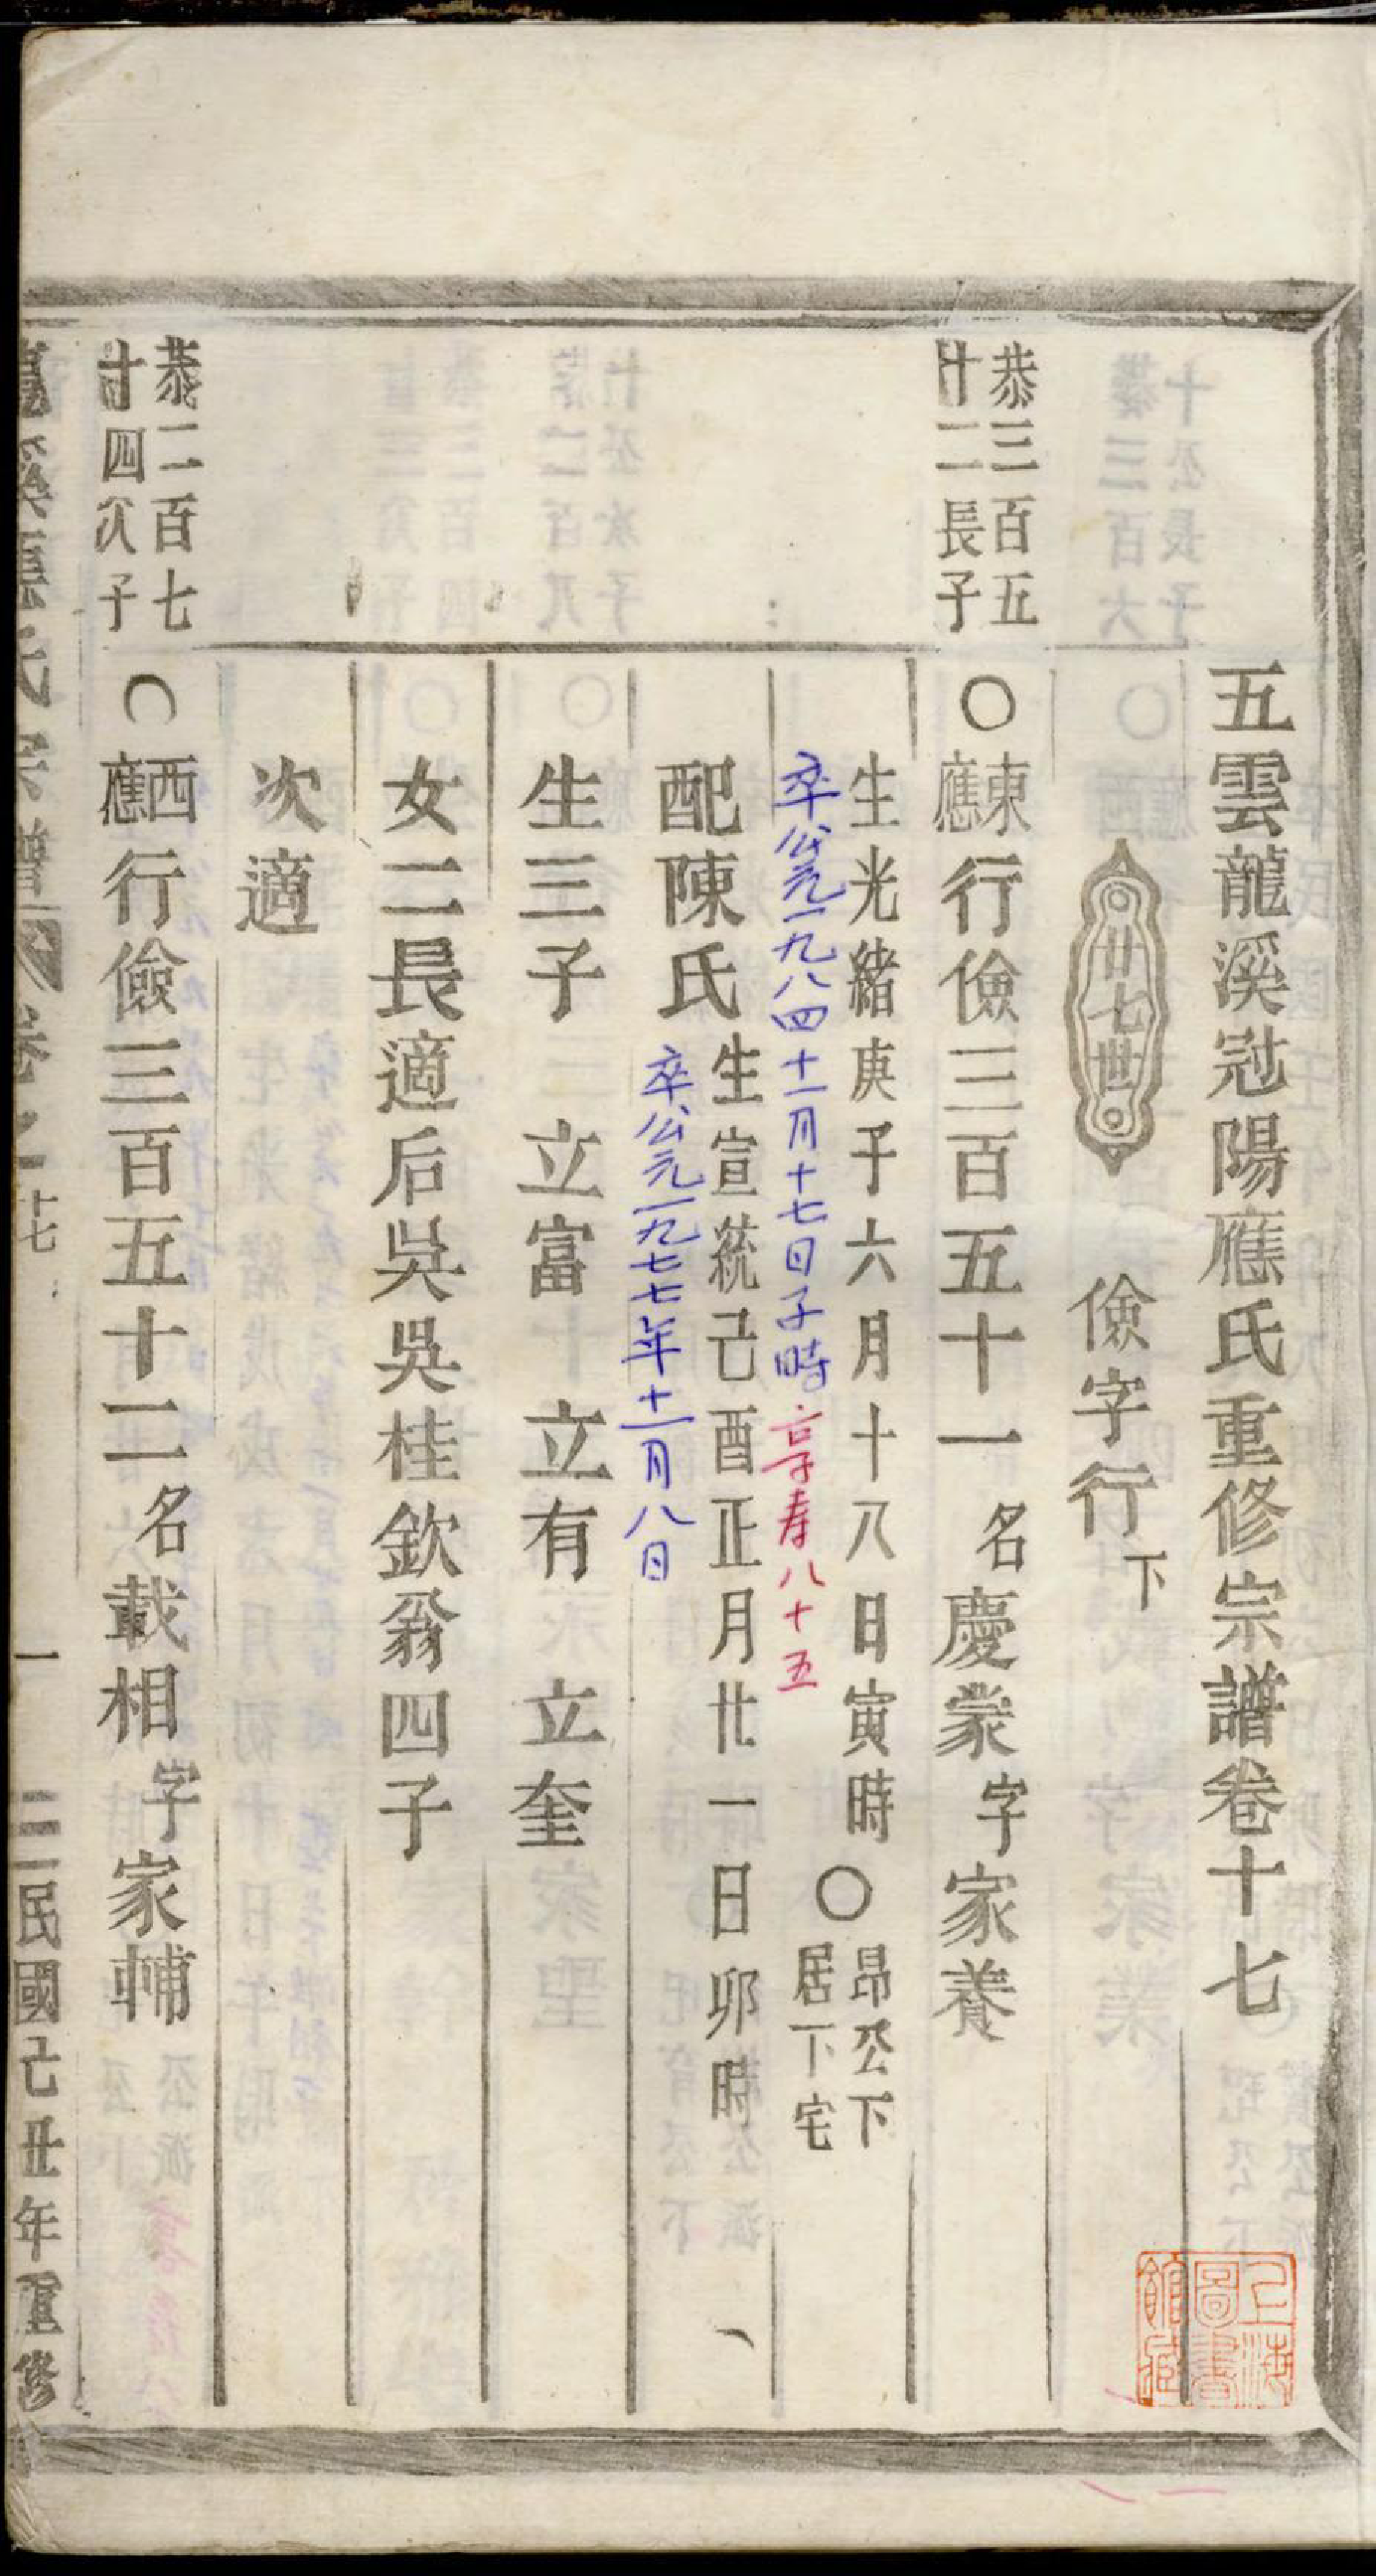 五雲龍溪冠陽應氏重修宗譜卷十七
廿七世
儉字行下
恭三百五
廿二長子
○東應行儉三百五十一名慶蒙字家養
生光緒庚子六月十八日寅時○昂公下居下宅
卒公元一九八四十一月十七日子時 享寿八十五
配陳氏生宣統己酉正月廿一日卯時
卒公元一九七七年十一月八日
生三子 立富 立有 立奎
女二長適后吳吳桂欽翁四子
次適
恭二百七
廿四次子
○西應行儉三百五十二名載相字家輔
龍溪應氏宗譜 卷之十七 一 民國己丑年重修
上海圖書館藏